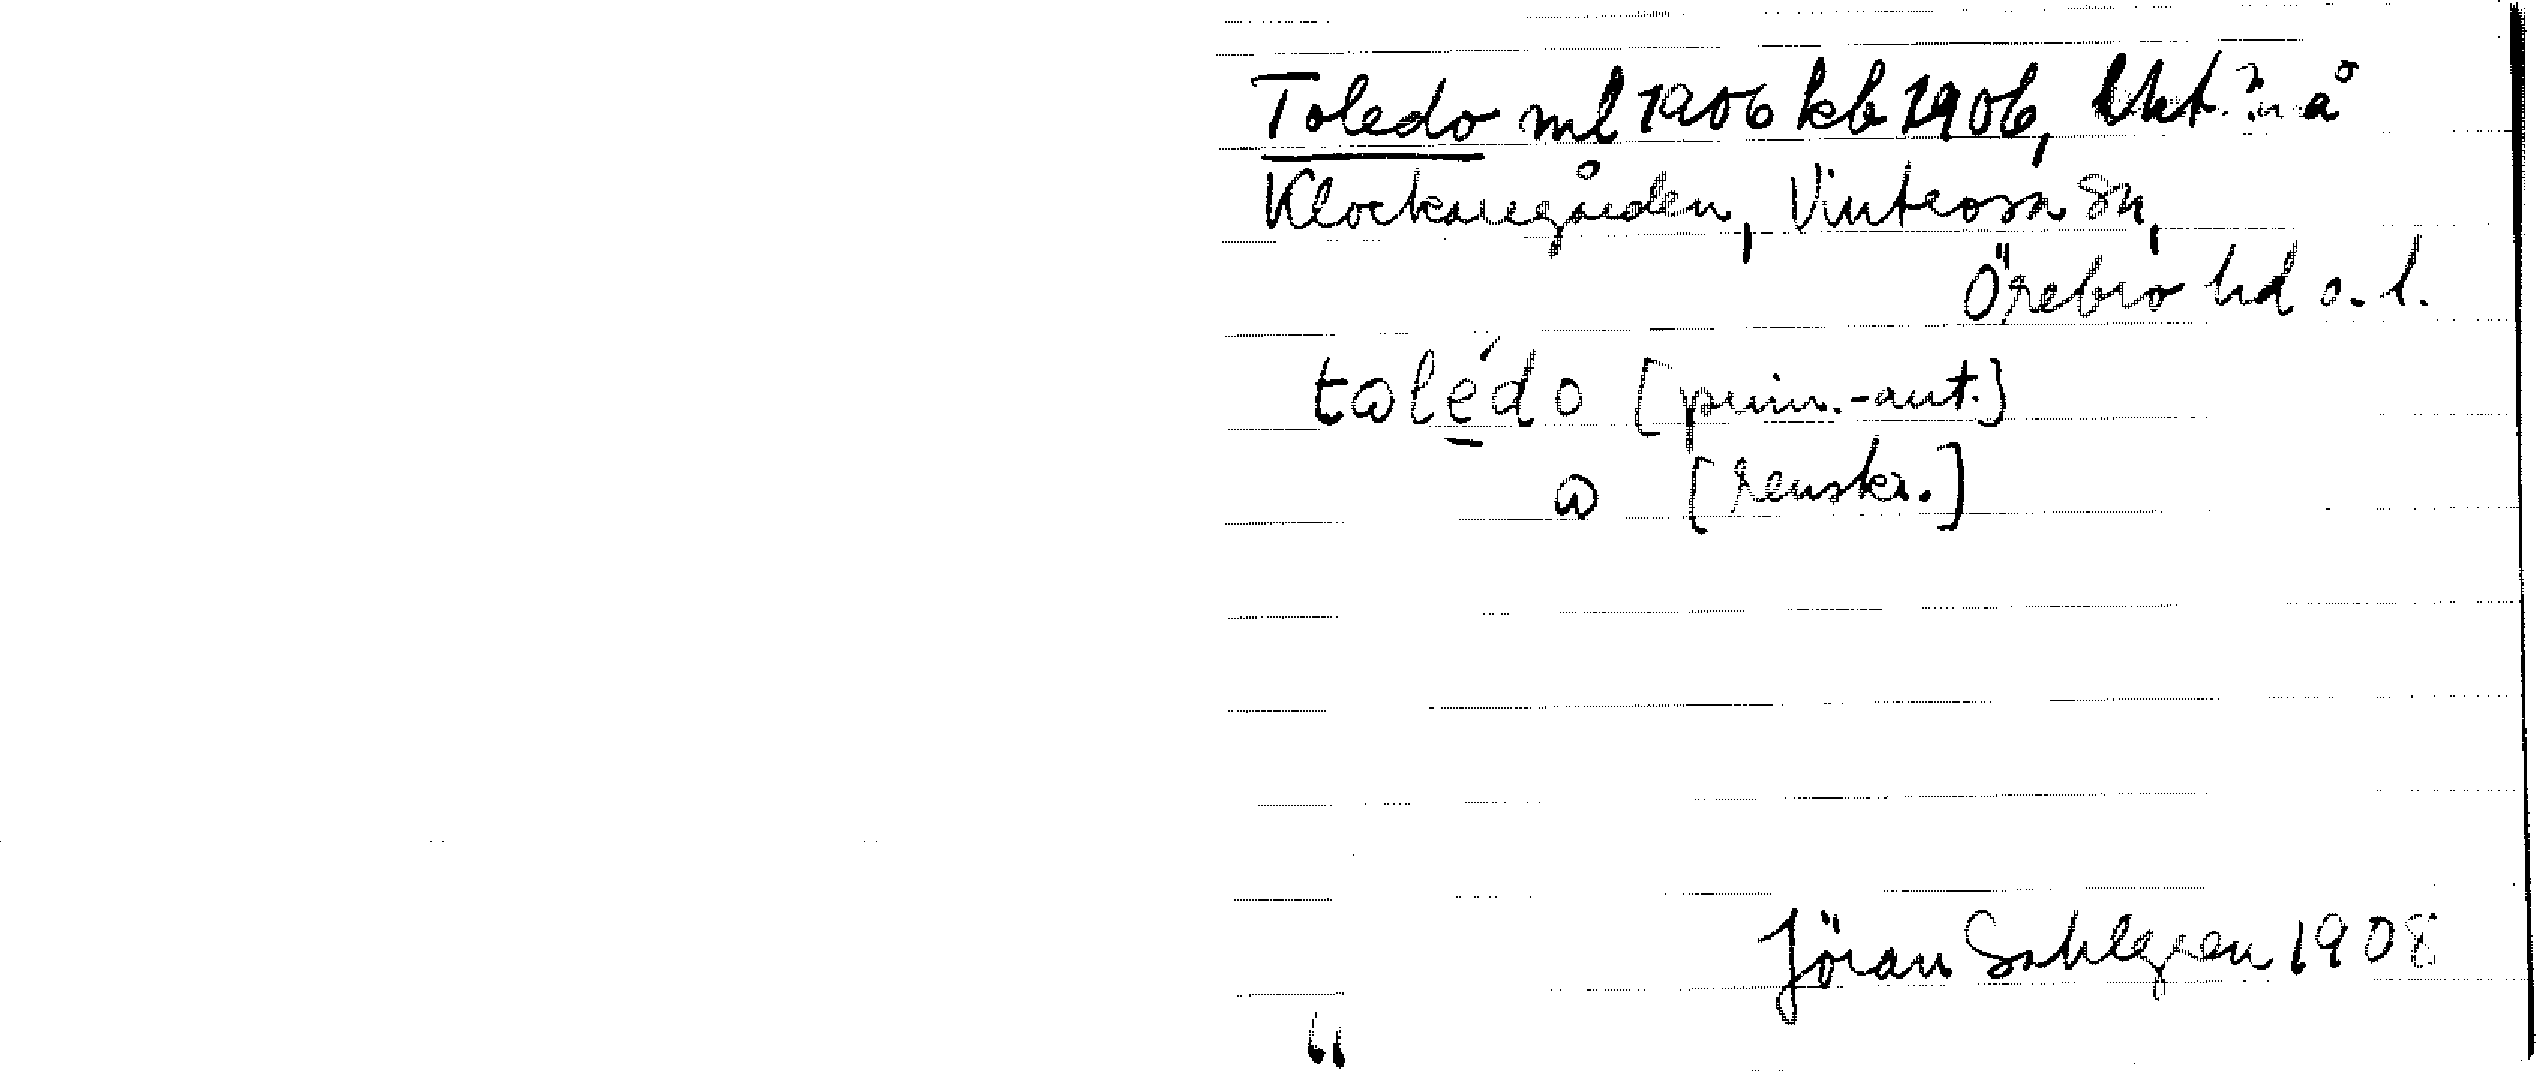 Toledo ml 1906 kb 1906, lht. in å
Klockaregården, Vintrosa sn,
Örebro hd o. l.
tωlédo [prim.-ant.]
ω [renskr.]
Jöran Sahlgren 1908